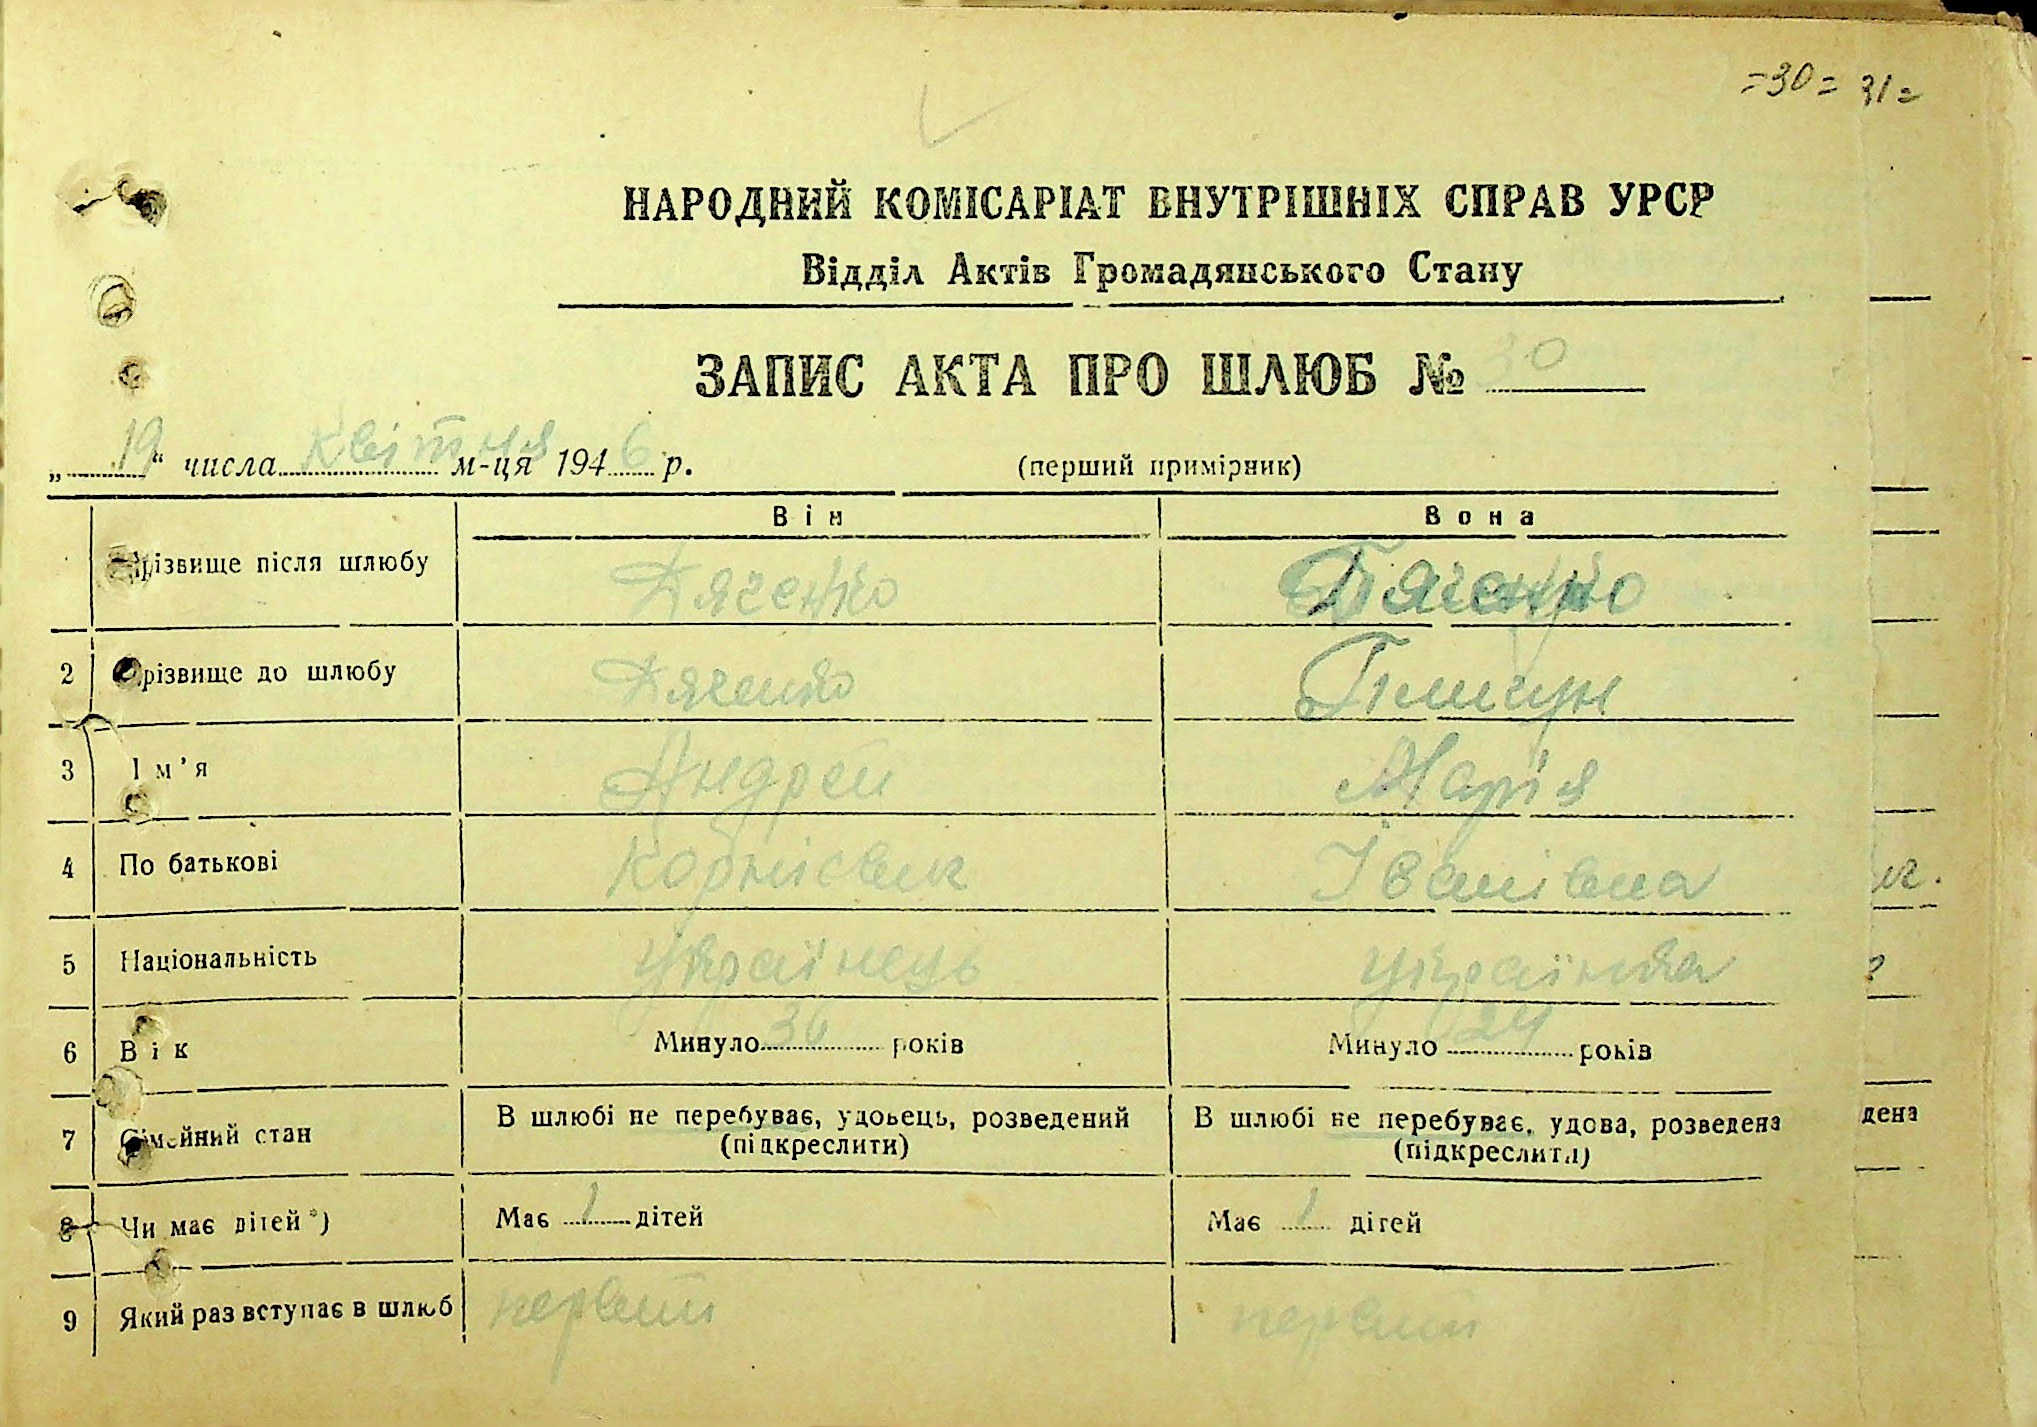 =30= 31=
НАРОДНИЙ КОМІСАРІАТ ВНУТРІШНІХ СПРАВ УРСР
Відділ Актів Громадянського Стану
ЗАПИС АКТА ПРО ШЛЮБ № 30
„19“ числа квітня м-ця 1946 р. (перший примірник)
Він Вона
Прізвище після шлюбу Дяченко Дяченко
2 Прізвище до шлюбу Дяченко
3 Ім'я Андрей Марія
4 По батькові Корнієвич Іванівна
5 Національність Українець Українка
6 Вік Минуло 36 років Минуло 24 років
7 Сімейний стан В шлюбі не перебуває, удовець, розведений (підкреслити) В шлюбі не перебуває, удова, розведена (підкреслити) дена
8 Чи має дітей *) Має 1 дітей Має 1 дітей
9 Який раз вступає в шлюб первий первий